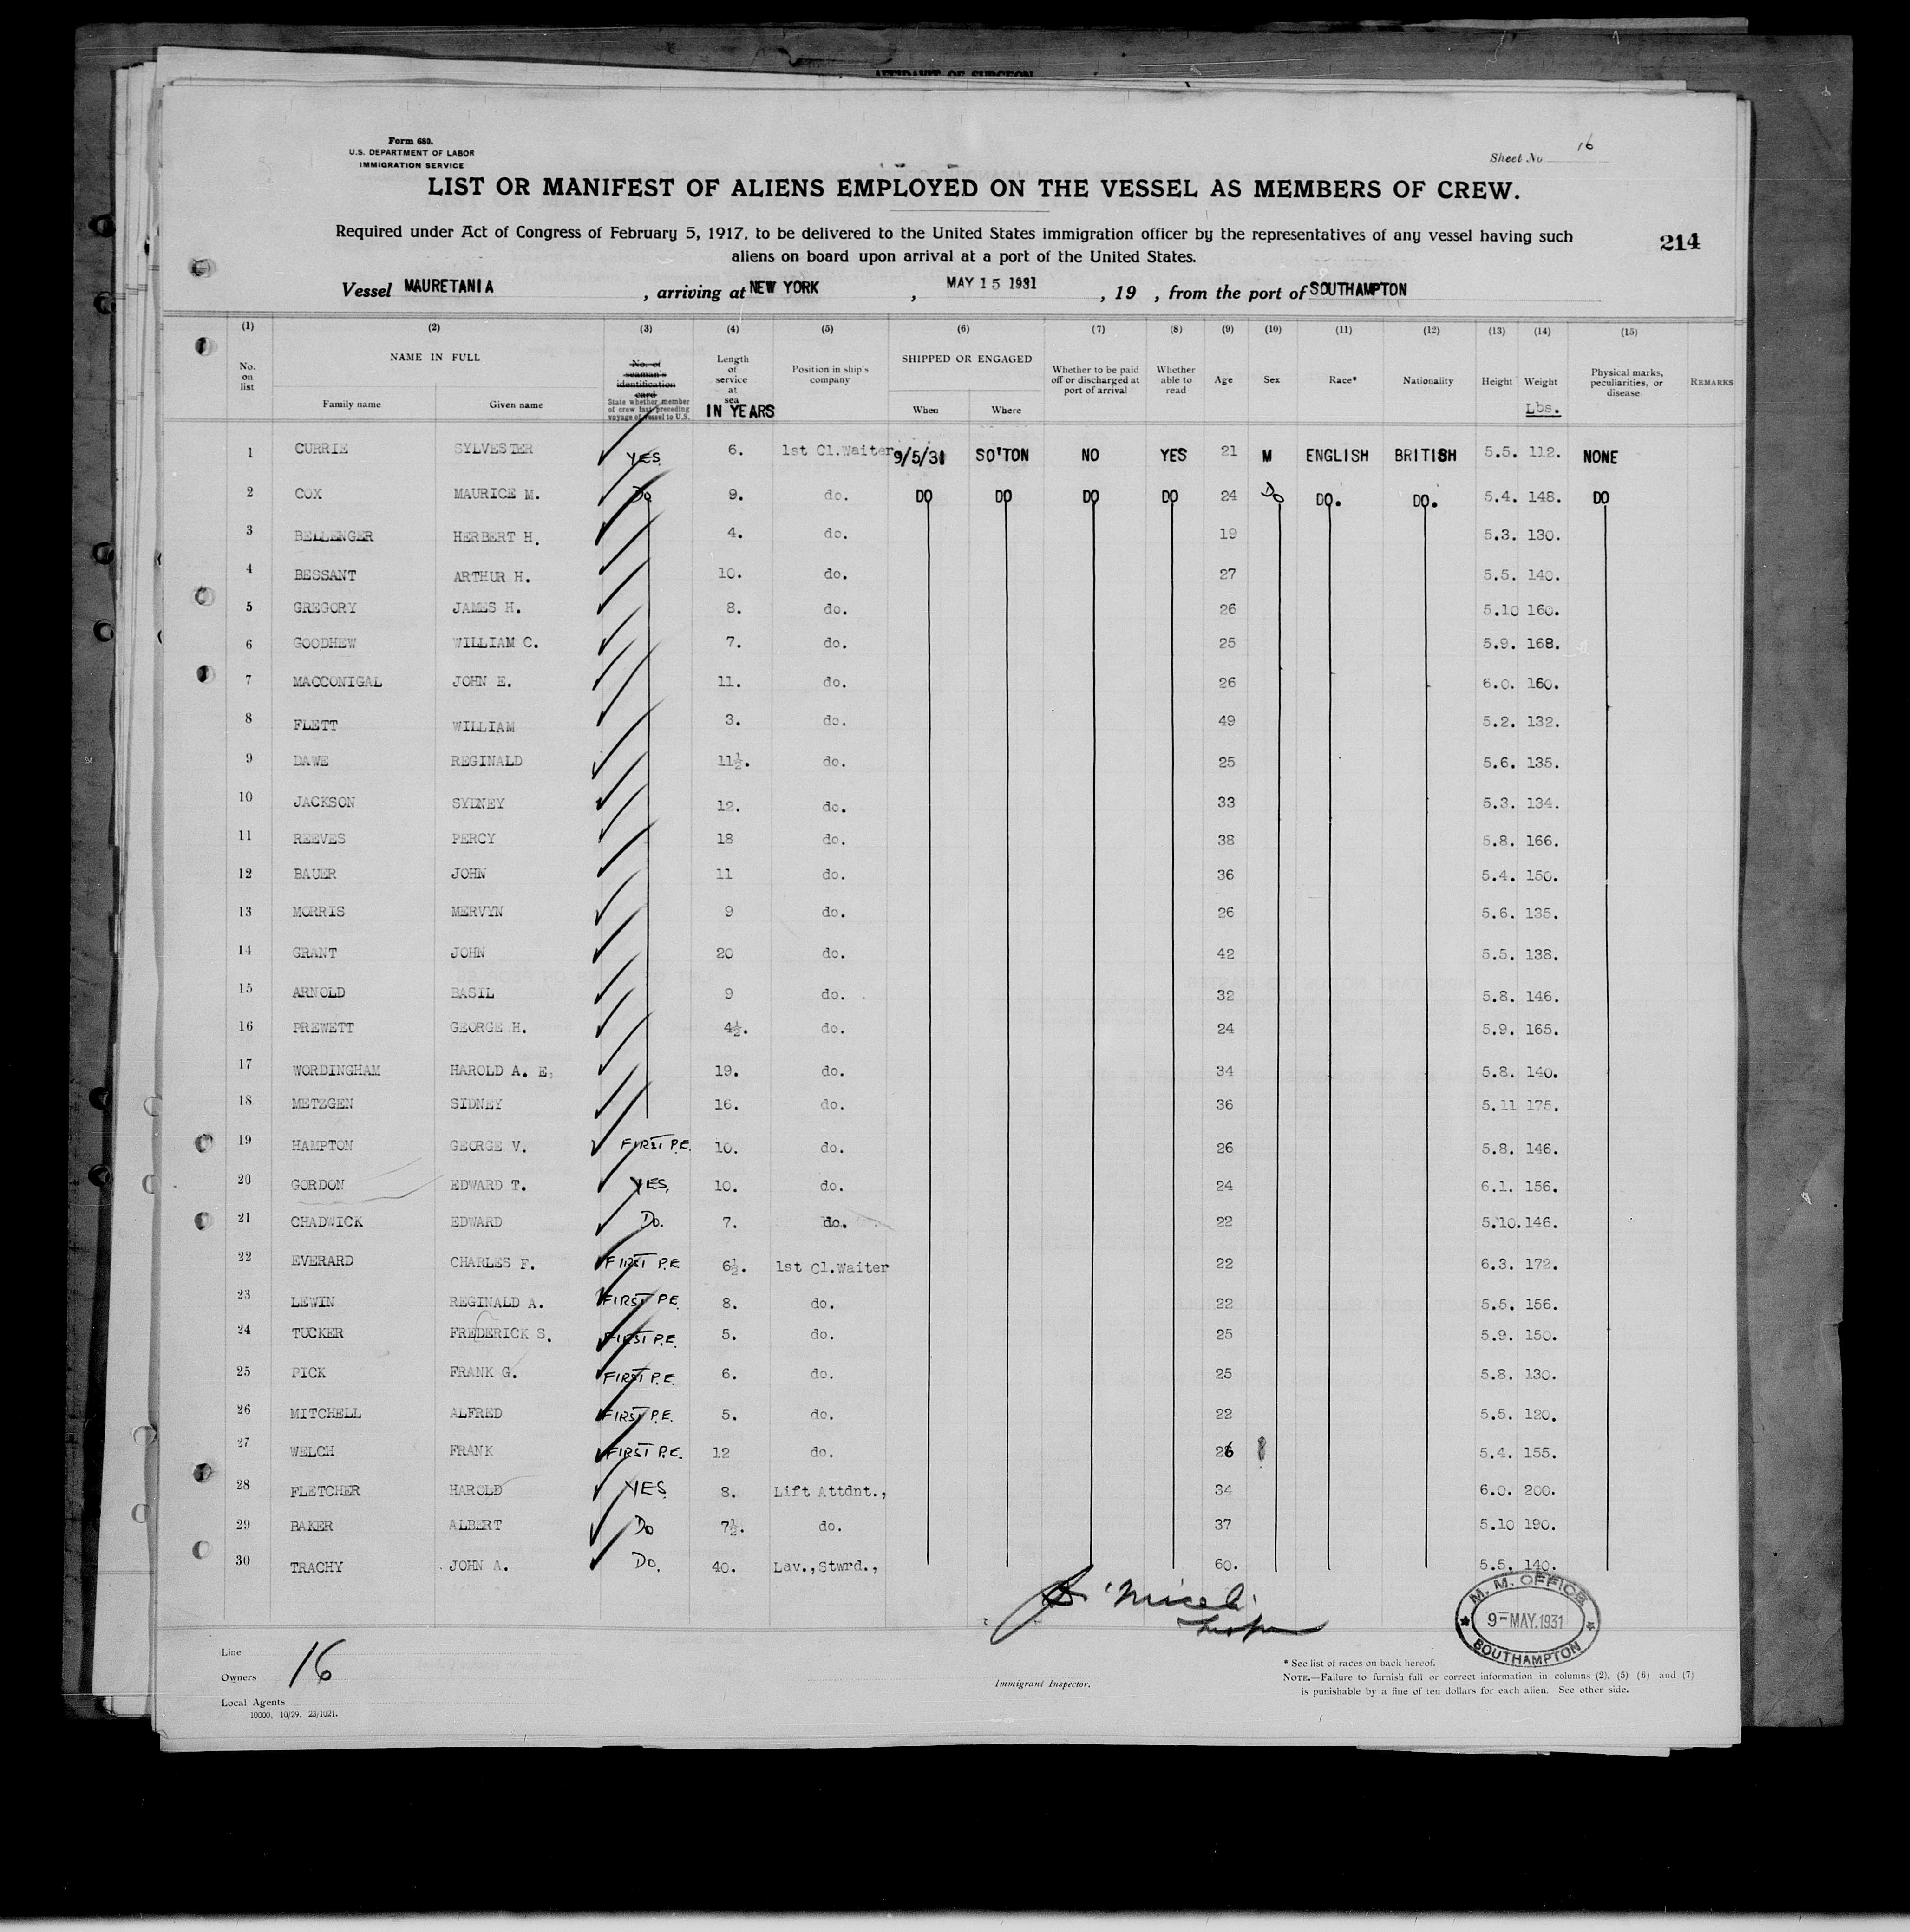 AFFIDAVIT OF SURGEON
Form 680.
U.S. DEPARTMENT OF LABOR
IMMIGRATION SERVICE
Sheet No 16
LIST OR MANIFEST OF ALIENS EMPLOYED ON THE VESSEL AS MEMBERS OF CREW.
Required under Act of Congress of February 5, 1917, to be delivered to the United States immigration officer by the representatives of any vessel having such
aliens on board upon arrival at a port of the United States.
214
Vessel MAURETANIA, arriving at NEW YORK, MAY 15 1931, 19 , from the port of SOUTHAMPTON
(1) (2) (3) (4) (5) (6) (7) (8) (9) (10) (11) (12) (13) (14) (15)
No. on list
NAME IN FULL
Family name Given name
No. of seaman's identification card
State whether member of crew last preceding voyage of vessel to U.S.
Length of service at sea IN YEARS
Position in ship's company
SHIPPED OR ENGAGED
When Where
Whether to be paid off or discharged at port of arrival
Whether able to read
Age Sex Race* Nationality Height Weight Lbs.
Physical marks, peculiarities, or disease
REMARKS
1 CURRIE SYLVESTER YES 6. 1st Cl.Waiter 9/5/31 SO'TON NO YES 21 M ENGLISH BRITISH 5.5. 112. NONE
2 COX MAURICE M. Do 9. do. DO DO DO DO 24 Do DO. DO. 5.4. 148. DO
3 BELLENGER HERBERT H. 4. do. 19 5.3. 130.
4 BESSANT ARTHUR H. 10. do. 27 5.5. 140.
5 GREGORY JAMES H. 8. do. 26 5.10 160.
6 GOODHEW WILLIAM C. 7. do. 25 5.9. 168.
7 MACCONIGAL JOHN E. 11. do. 26 6.0. 160.
8 FLETT WILLIAM 3. do. 49 5.2. 132.
9 DAWE REGINALD 11½. do. 25 5.6. 135.
10 JACKSON SYDNEY 12. do. 33 5.3. 134.
11 REEVES PERCY 18 do. 38 5.8. 166.
12 BAUER JOHN 11 do. 36 5.4. 150.
13 MORRIS MERVYN 9 do. 26 5.6. 135.
14 GRANT JOHN 20 do. 42 5.5. 138.
15 ARNOLD BASIL 9 do. 32 5.8. 146.
16 PREWETT GEORGE H. 4½. do. 24 5.9. 165.
17 WORDINGHAM HAROLD A. E. 19. do. 34 5.8. 140.
18 METZGEN SIDNEY 16. do. 36 5.11 175.
19 HAMPTON GEORGE V. FIRST P.E. 10. do. 26 5.8. 146.
20 GORDON EDWARD T. YES, 10. do. 24 6.1. 156.
21 CHADWICK EDWARD Do. 7. do. 22 5.10. 146.
22 EVERARD CHARLES F. FIRST P.E. 6½. 1st Cl.Waiter 22 6.3. 172.
23 LEWIN REGINALD A. FIRST P.E. 8. do. 22 5.5. 156.
24 TUCKER FREDERICK S. FIRST P.E. 5. do. 25 5.9. 150.
25 PICK FRANK G. FIRST P.E. 6. do. 25 5.8. 130.
26 MITCHELL ALFRED FIRST P.E. 5. do. 22 5.5. 120.
27 WELCH FRANK FIRST P.E. 12 do. 26 5.4. 155.
28 FLETCHER HAROLD YES 8. Lift Attdnt., 34 6.0. 200.
29 BAKER ALBERT Do 7½. do. 37 5.10 190.
30 TRACHY JOHN A. Do. 40. Lav.,Stwrd., 60. 5.5. 140.
M. M. OFFICE
9-MAY.1931
SOUTHAMPTON
Line
Owners 16
Local Agents
10000. 10/29. 23/1021.
Immigrant Inspector.
* See list of races on back hereof.
NOTE.—Failure to furnish full or correct information in columns (2), (5) (6) and (7)
is punishable by a fine of ten dollars for each alien. See other side.